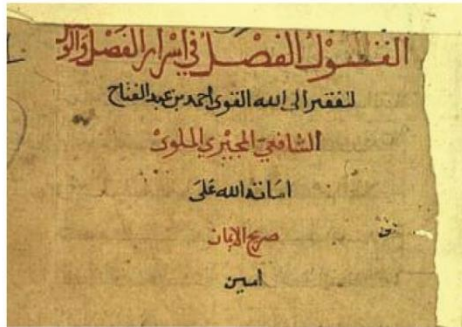 القول الفصل في أسرار الفصل والو
للفقير الى الله القوى احمد بن عبد الفتاح
الشافعى المجيرى الملوى
اماته الله على
صريح الايمان
امين